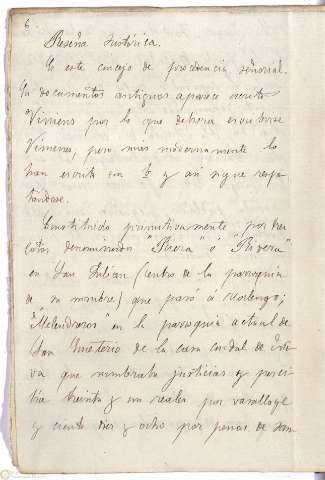 6.
Reseña histórica.
Es este concejo de procedencia señorial.
En documentos antiguos aparece escrito
Vimenes por lo que debiera escribirse
Vimenes, pero mas modernamente lo
han escrito con b y así sigue respe-
tándose.
Constituido primitivamente por tres
cotos denominados "Riera" ó "Rivera"
en San Julian (centro de la parroquia
de su nombre) que pasó á realengo;
"Melendreros" en la parroquia actual de
San Emeterio de la casa condal de
que nombraba justicias y perci-
bia treinta y un reales por vasallaje
y ciento diez y ocho por penas de